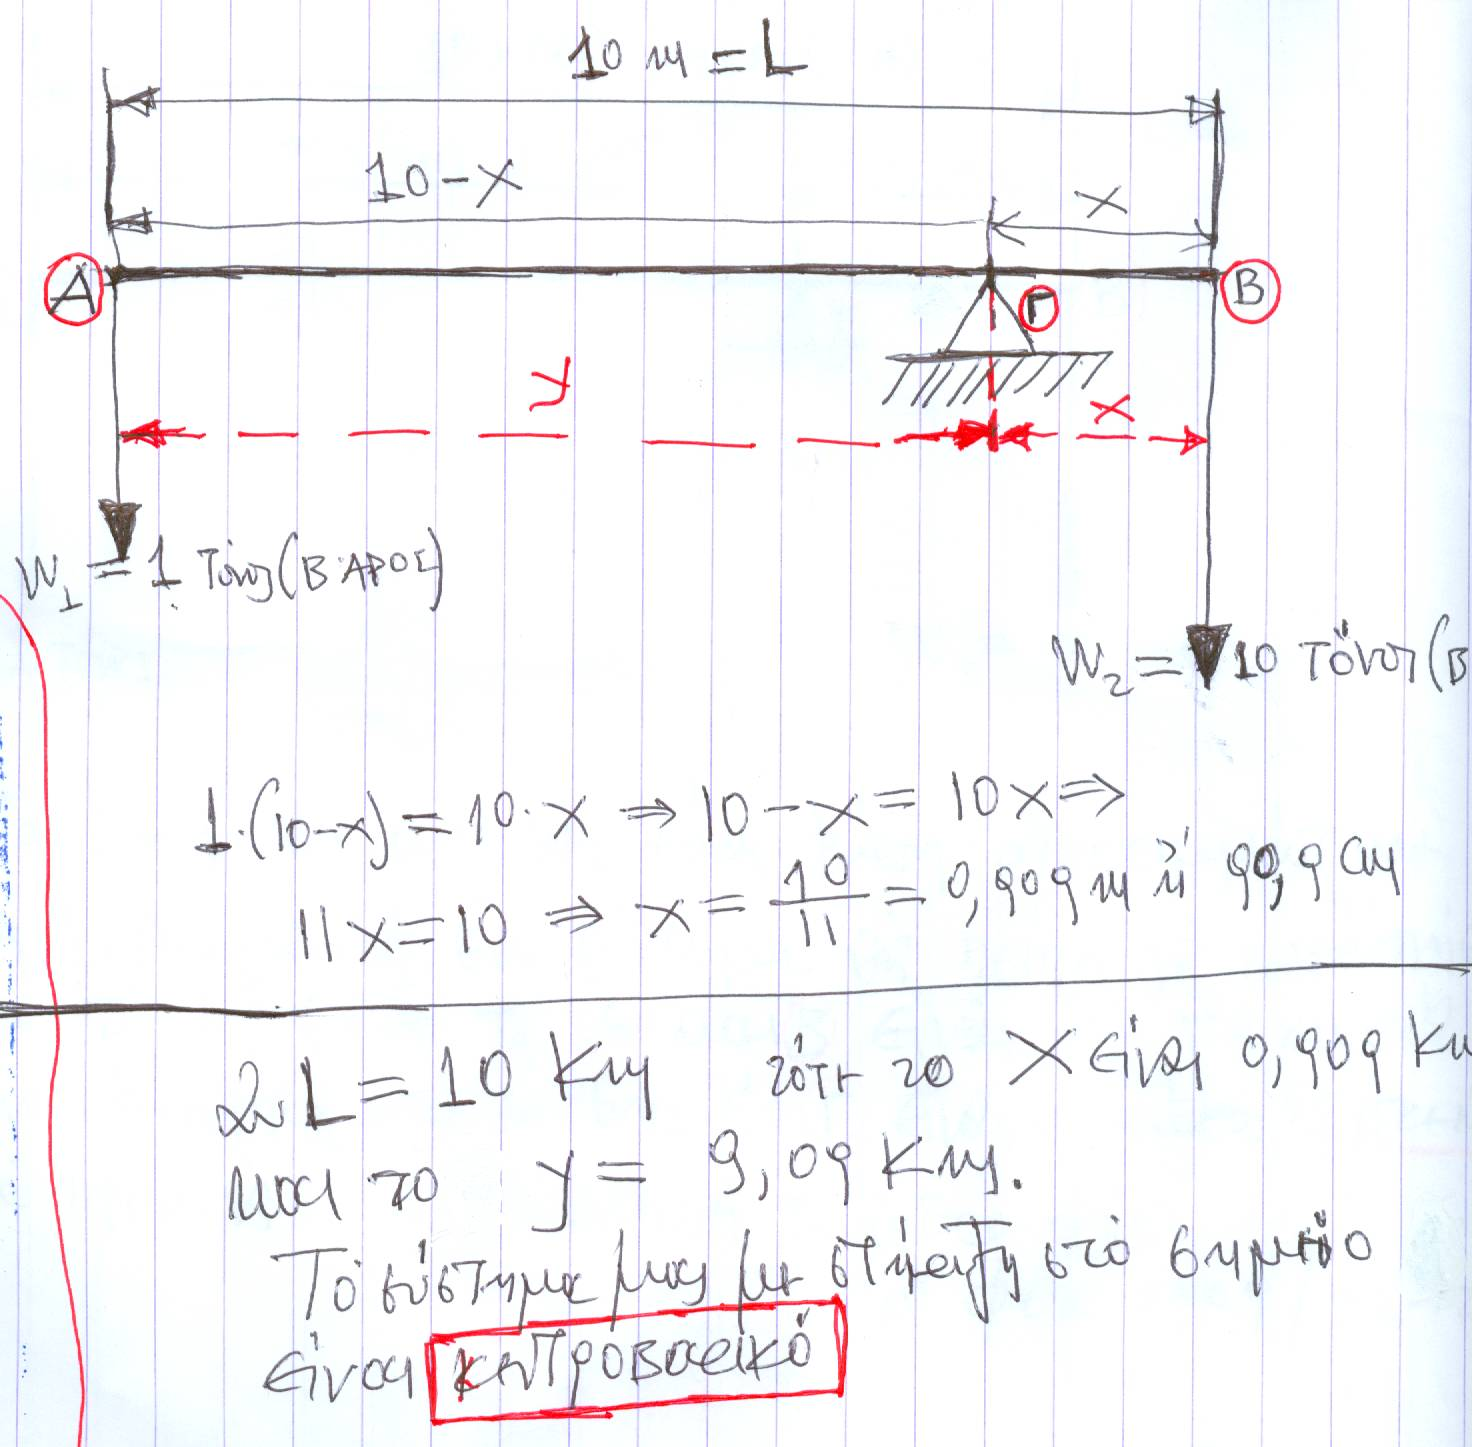 10 m = L
10-x
x
A
Γ
B
y
x
W₁ = 1 Τόνος (ΒΑΡΟΣ)
W₂ = 10 Τόνοι (Β
1·(10-x) = 10·x ⇒ 10-x = 10x ⇒
11x=10 ⇒ x = 10/11 = 0,909 m ή 90,9 cm
Αν L = 10 Km τότε το X είναι 0,909 Km
και το y = 9,09 Km.
Το σύστημα μας με στήριξη στο σημείο
είναι κεντροβαρικό